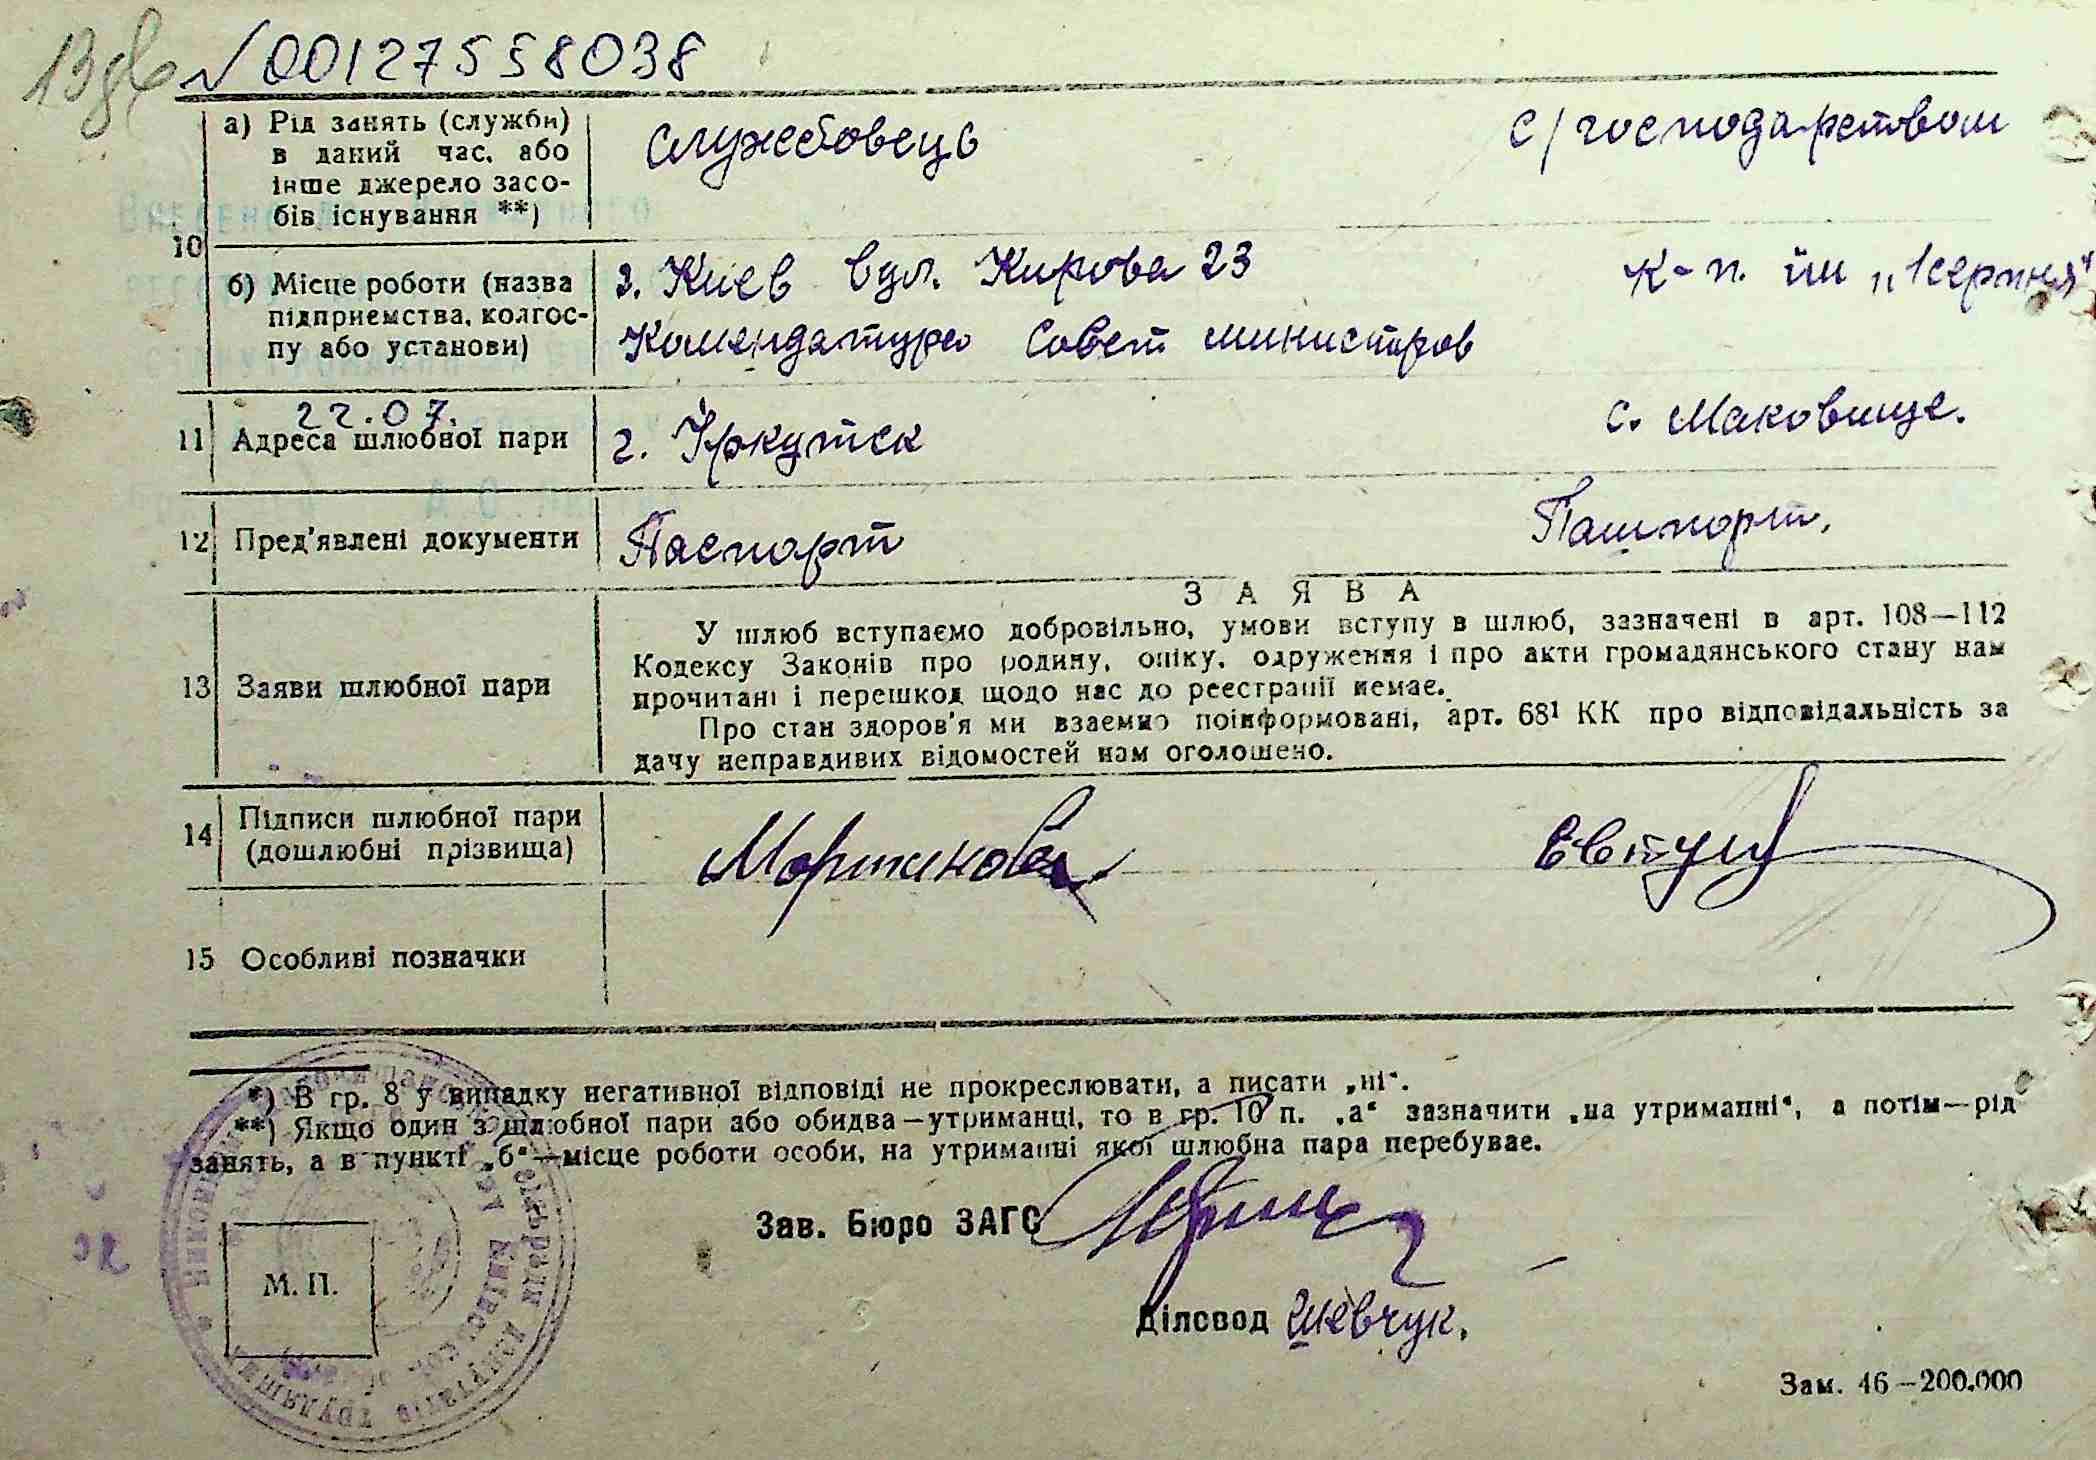 №00127558038
а) Рід занять (служби)
в даний час, або
інше джерело засо-
бів існування **)
службовець
с/господарством
10
б) Місце роботи (назва
підприємства, колгос-
пу або установи)
г. Киев вул. Кирова 23
Комендатура Совет министров
к-п. ім „1 серпня"
22.07.
11 Адреса шлюбної пари
г. Іркутск
с. Маковище.
12 Пред'явлені документи
Паспорт
Пашпорт.
13 Заяви шлюбної пари
ЗАЯВА
У шлюб вступаємо добровільно, умови вступу в шлюб, зазначені в арт. 108—112
Кодексу Законів про родину, опіку, одруження і про акти громадянського стану нам
прочитані і перешкод щодо нас до реєстрації немає.
Про стан здоров'я ми взаємно поінформовані, арт. 68¹ КК про відповідальність за
дачу неправдивих відомостей нам оголошено.
14 Підписи шлюбної пари
(дошлюбні прізвища)
15 Особливі позначки
*) В гр. 8 у випадку негативної відповіді не прокреслювати, а писати „ні".
**) Якщо один з шлюбної пари або обидва—утриманці, то в гр. 10 п. „а" зазначити „на утриманні", а потім—рід
занять, а в пункті „б"—місце роботи особи, на утриманні якої шлюбна пара перебуває.
Зав. Бюро ЗАГС
М. П.
Діловод Шевчук.
Зам. 46—200.000